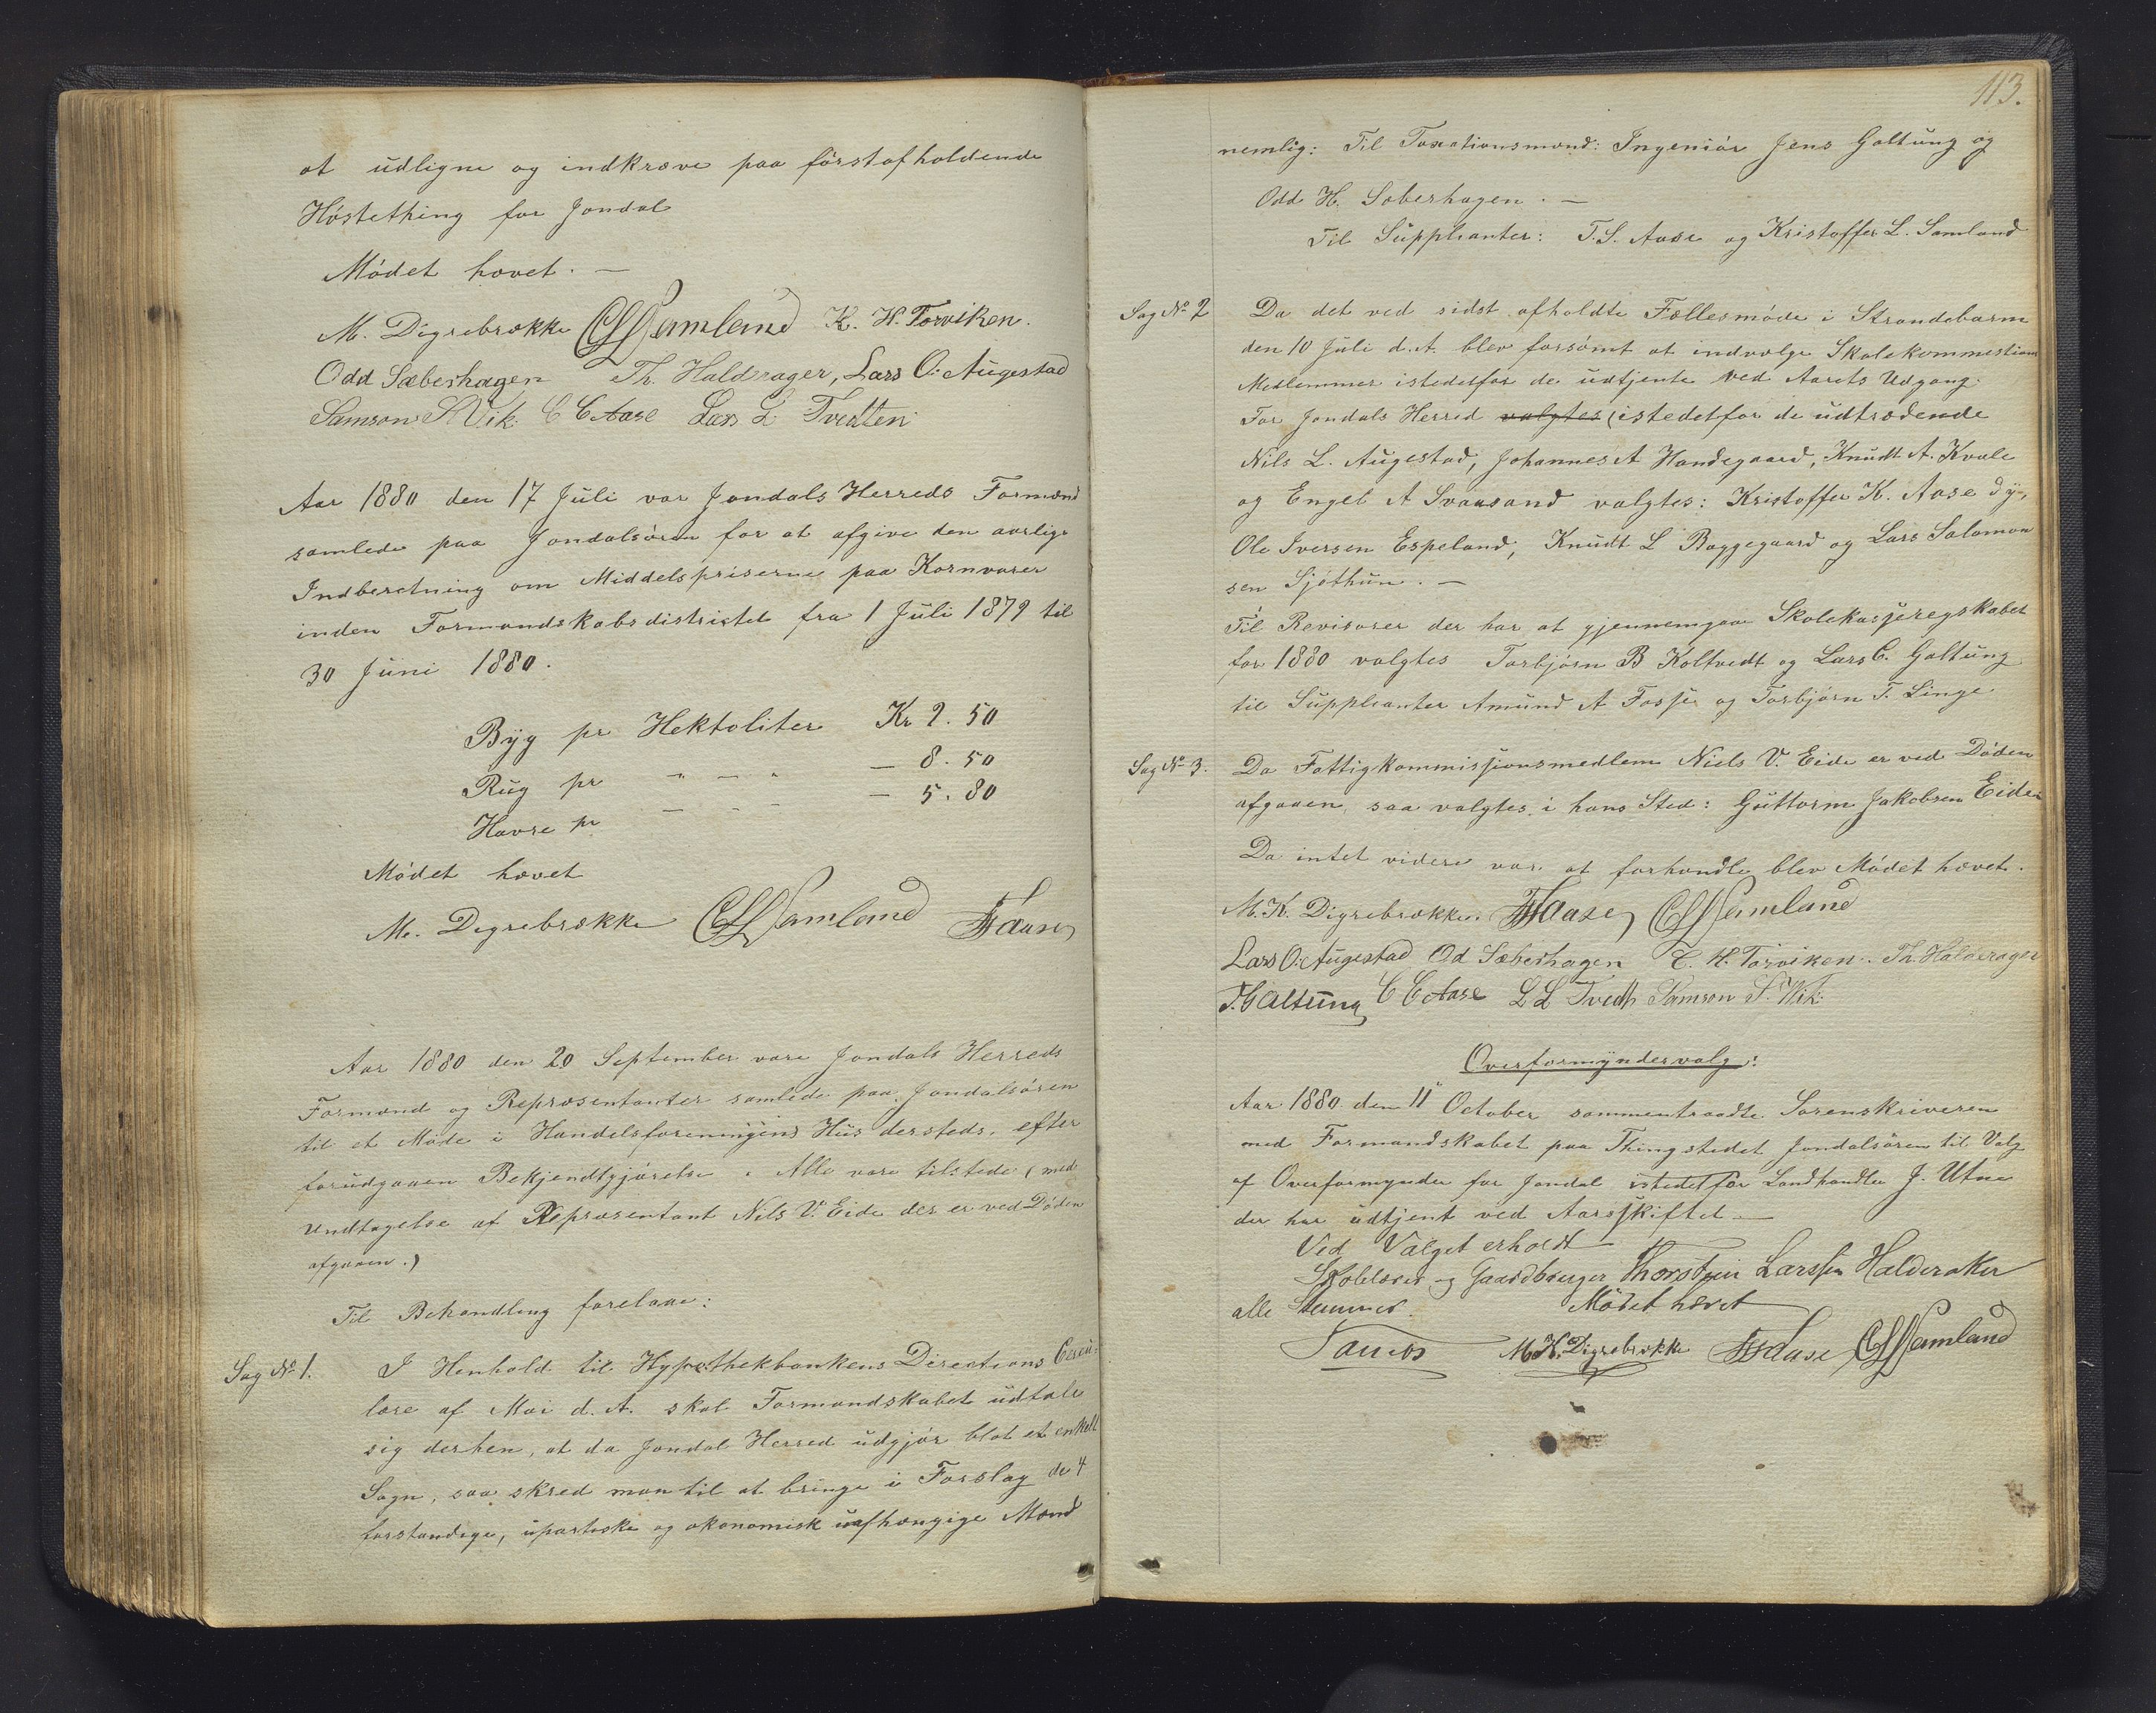 at udligne og indkræve paa förstafholdende
Höstething for Jondal
Mödet hævet. —
M. Digrebrække CLSamland K. H. Torviken.
Odd Sæbershagen Th. Haldrager, Lars O. Augestad
Samson S Vik. C C Aase Lars L. Tvedten
Aar 1880 den 17 Juli var Jondals Herreds Formænd
samlede paa Jondalsören for at afgive den aarlige
Indberetning om Middelspriserne paa Kornvarer
inden Formandskabsdistrictet fra 1 Juli 1879 til
30 Juni 1880.
Byg pr Hektoliter Kr 9. 50
Rug pr " — " — 8. 50
Havre pr — " " — 5. 80
Mödet hævet
M. Degrebrække CLSamland TSAase
Aar 1880 den 20 September vare Jondals Herreds
Formænd og Repræsentanter samlede paa Jondalsören
til et Möde i Handelsforeningens Hus dersteds, efter
forudgaaen Bekjendtgjörelse. Alle vare tilstede (med
Undtagelse af Repræsentant Nils V. Eide der er ved Döden
afgaaen.)
Til Behandling forelaae:
Sag No 1. I Henhold til Hypothekbankens Directions Circu-
lære af Mai d. A. skal Formandskabet udtale
sig derhen, at da Jondal Herred udgjör blot et enkelt
Sogn, saa skred man til at bringe i Forslag de 4
forstandige, upartiske og økonomisk uafhængige Mænd
113.
nemlig: Til Taxationsmænd: Ingeniör Jens Galtung og
Odd H. Seberhagen. —
Til Suppleanter: T. S. Aase og Kristoffer L. Samland
Sag No 2 Da det ved sidst afholdte Fællesmöde i Strandebarm
den 10 Juli d. A. blev forsömt at indvælge Skolekommestions
Medlemmer istedetfor de udtjente ved Aarets Udgang.
For Jondals Herred valgtes (istedetfor de udtrædende
Nils L. Augestad, Johannes A Handegaard, Knudt A. Kvale
og Engel A Svaasand valgtes: Kristoffer K. Aase dy,
Ole Iversen Espeland, Knudt L Byggegaard og Lars Salomon
sen Sjöthun. —
Til Revisorer der har at gjennemgaae Skolekasseregskabet
for 1880 valgtes Torbjörn B Koltvedt og Lars C. Galtung
til Suppleanter Amund A Fosse og Torbjörn T. Linge.
Sag No 3. Da Fattigkommissionsmedlem Niels V. Eide er ved Döden
afgaaen, saa valgtes i hans Sted: Guttorm Jakobsen Eide
Da intet videre var at forhandle blev Mödet hævet.
M. K. Digrebrække. TSAase, CLSamland
Lars O. Augestad Od Sæbershagen K. H. Torviken. Th. Halderager
J. Galtung C C Aase L L Tvedt Samson S. Wik.
Overformyndervalg:
Aar 1880 den 11 October sammentraadte Sorenskriveren
med Formandskabet paa Thingstedet Jondalsören til Valg
af Overformynder for Jondal istedetfor Landhandler J. Utne
der har udtjent ved Aarsskiftet —
Ved Valget erholdt
Skolelærer og Gaardbruger Thorstein Larssen Halderaker
alle Stemmer. Mödet hævet
M. K. Digrebrække TSAase CLSamland